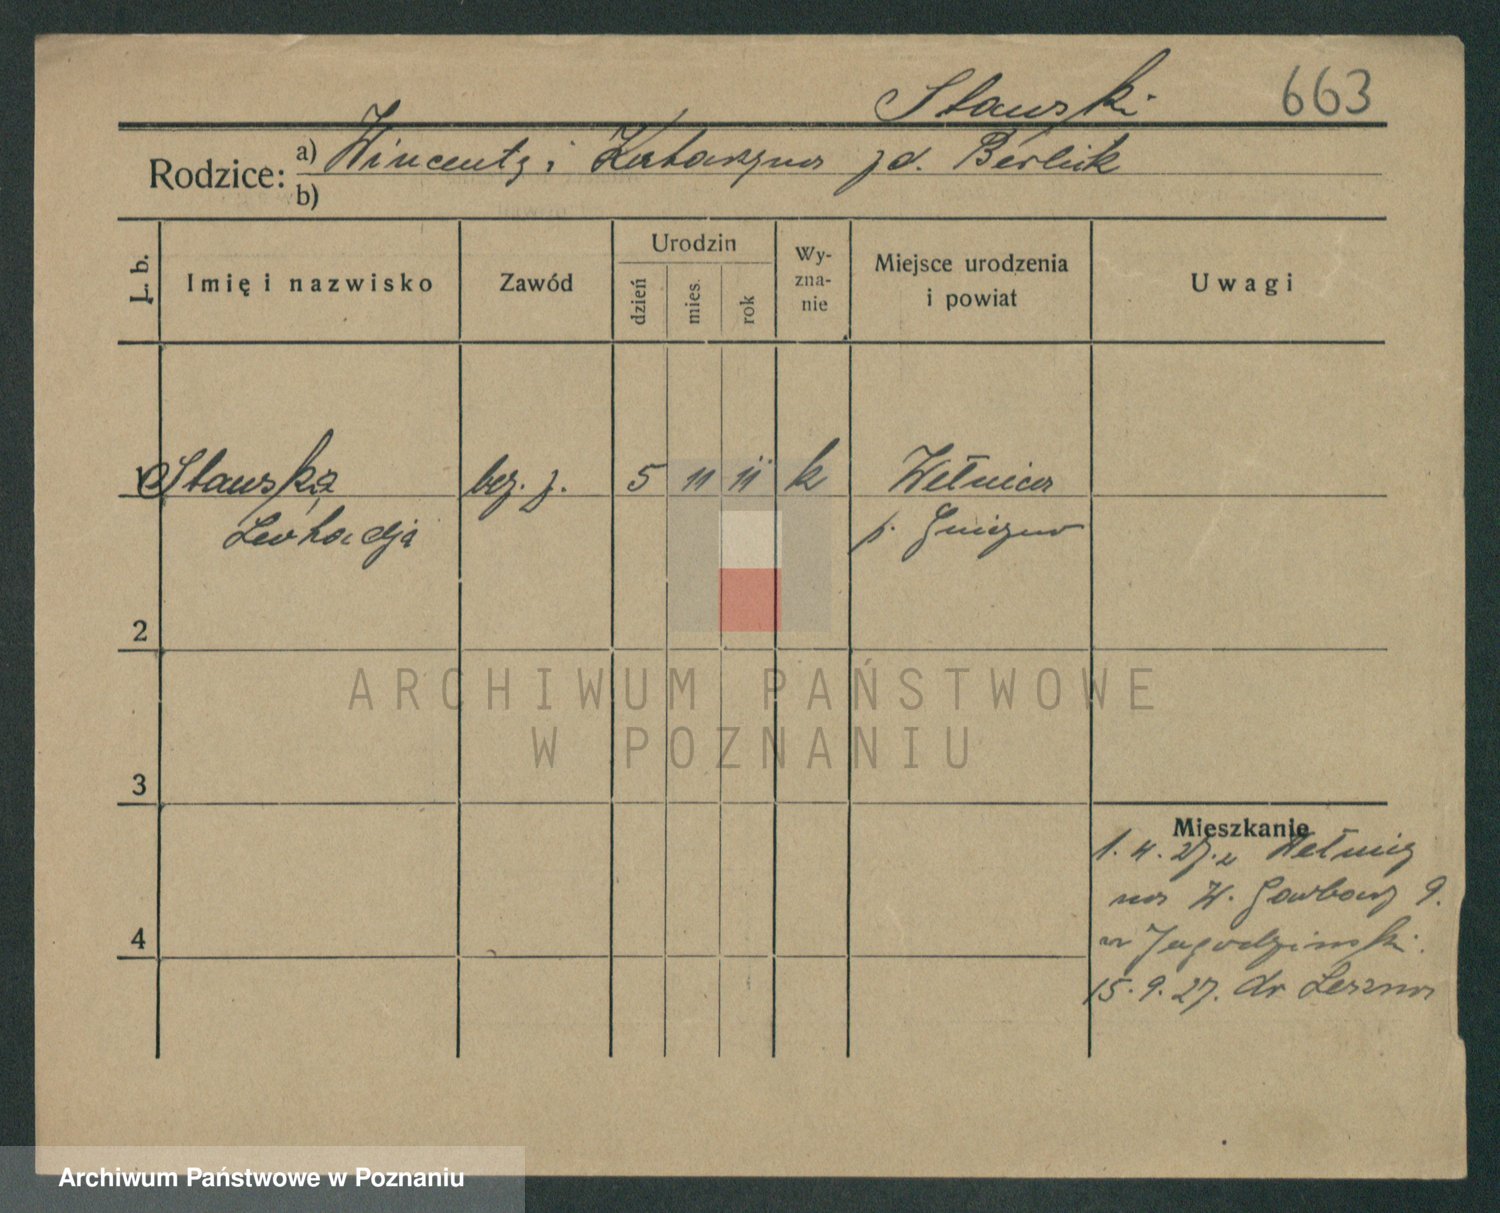 Stawski 663
Rodzice: a) Wincenty i Katarzyna zd. Berlik
b)
L. b. Imię i nazwisko Zawód Urodzin dzień mies. rok Wyznanie Miejsce urodzenia i powiat Uwagi
1 Stawska bez. z. 5 11 11 k Wełnica
Leokadja p. Gniezno
2
3
4
Mieszkanie
1. 4. 27. z Wełnicy
na W. Garbary 9.
u Jagodzinski.
15. 9. 27. do Leszna
ARCHIWUM PAŃSTWOWE
W POZNANIU
Archiwum Państwowe w Poznaniu